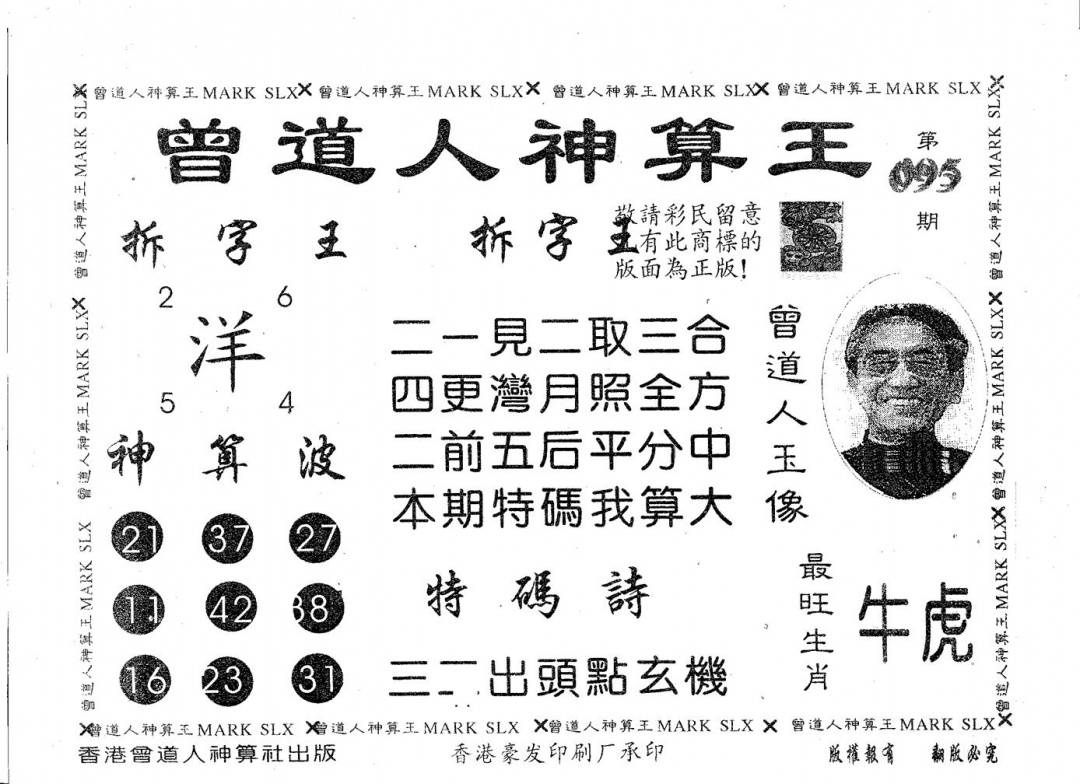 曾道人神算王MARK SLX 曾道人神算王MARK SLX 曾道人神算王MARK SLX 曾道人神算王MARK SLX
曾道人神算王
第
095
期
拆字王
拆字王
敬請彩民留意
有此商標的
版面為正版!
2 6
洋
5 4
二一見二取三合
四更灣月照全方
二前五后平分中
本期特碼我算大
曾道人玉像
神算波
21 37 27
11 42 38
16 23 31
特碼詩
三二出頭點玄機
最旺生肖
牛虎
曾道人神算王MARK SLX 曾道人神算王MARK SLX 曾道人神算王MARK SLX
曾道人神算王MARK SLX 曾道人神算王MARK SLX 曾道人神算王MARK SLX
曾道人神算王MARK SLX 曾道人神算王MARK SLX 曾道人神算王MARK SLX 曾道人神算王MARK SLX
香港曾道人神算社出版
香港豪发印刷厂承印
版權報有 翻版必究